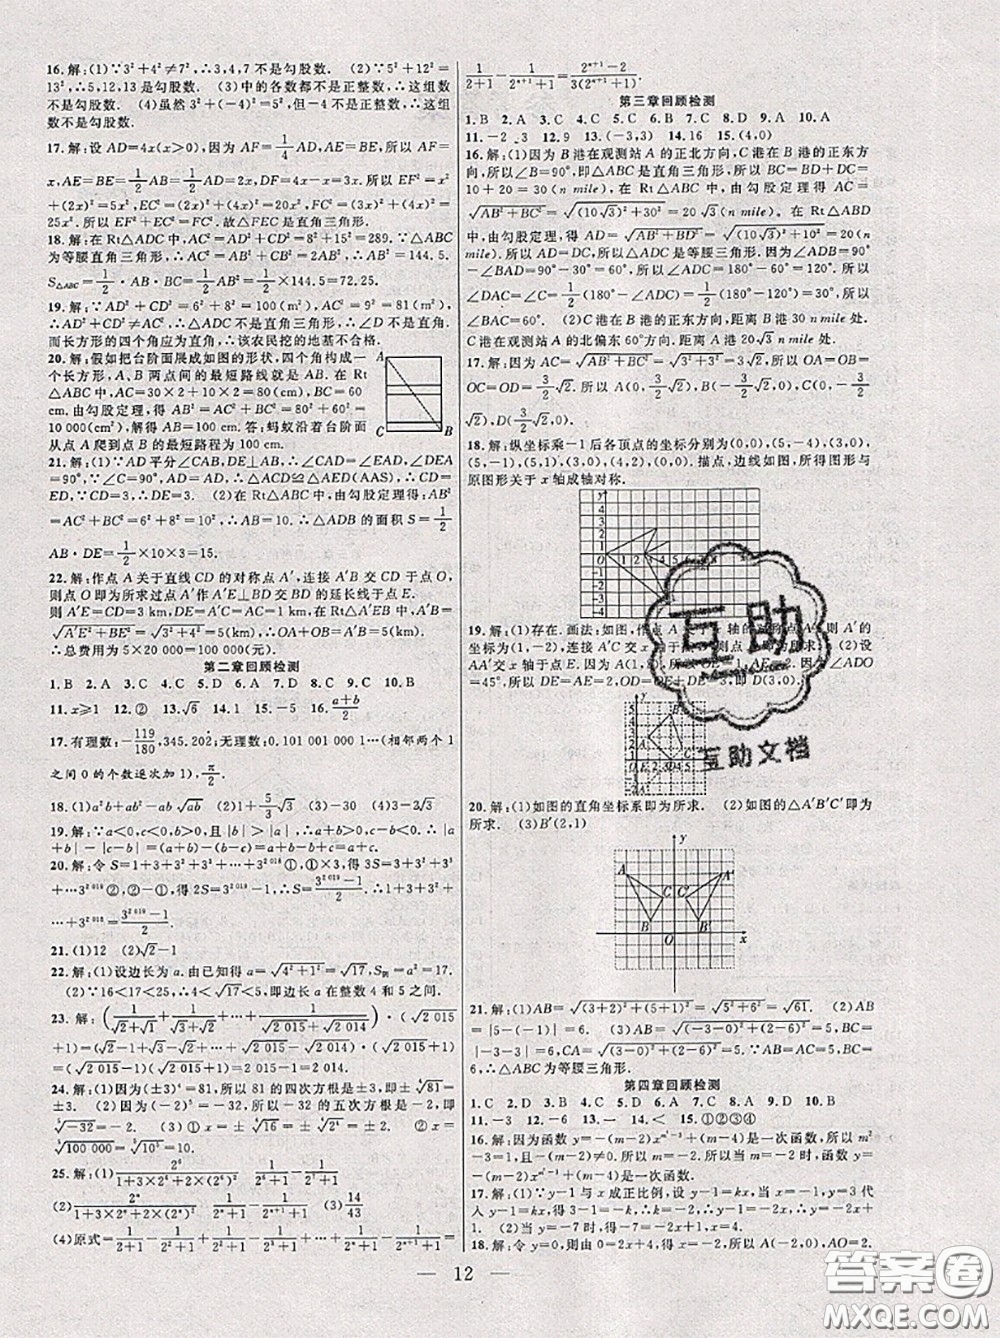 16.解:(1)∵3²+4²≠7²,∴3,4,7不是勾股数. (2)∵5²+12²=
13²,∴5,12,13是勾股数. (3)中的各数都不是正整数,∴这组
数不是勾股数. (4)虽然3²+(-4)²=5²,但-4不是正整数,∴这组
数不是勾股数.
17.解:设AD=4x(x>0),因为AF=1/4AD,AE=BE,所以AF=
x,AE=BE=2x,DF=3x.因为∠A=∠B=∠D=90°,所以EF²=x²
+(2x)²=5x²,EC²=(4x)²+(2x)²=20x²,FC²=(3x)²+(4x)²=
25x².所以EF²+EC²=FC².故△FEC是直角三角形.
18.解:在Rt△ADC中,AC²=AD²+CD²=8²+15²=289.∵△ABC
为等腰直角三角形,∴AC²=AB²+BC²=2AB²=289.∴AB²=144.5.
S△ABC=1/2·AB·BC=1/2AB²=1/2×144.5=72.25.
19.解:∵AD²+CD²=6²+8²=100(m²),AC²=9²=81(m²),
∴AD²+CD²≠AC².∴△ADC不是直角三角形,∴∠D不是直角.
而长方形的四个角应为直角,∴该农民挖的地基不合格.
20.解:假如把台阶面展成如图的形状,四个角构成一
个长方形,A,B两点间的最短路线就是AB.在Rt
△ABC中,AC=30×2+10×2=80(cm),BC=60
cm.由勾股定理,得AB²=AC²+BC²=80²+60²=
10 000(cm²),AB=100 cm.答:蚂蚁沿着台阶面
从点A爬到点B的最短路程为100 cm.
A
C B
21.解:(1)∵AD平分∠CAB,DE⊥AB,∴∠CAD=∠EAD,∠DEA
=90°.∵∠C=90°,AD=AD,∴△ACD≌△AED(AAS),∴CD=
ED.∵CD=3,∴DE=3. (2)在Rt△ABC中,由勾股定理得:AB²=
AC²+BC²=6²+8²=10²,∴AB=10,∴△ADB的面积S=1/2
AB·DE=1/2×10×3=15.
22.解:作点A关于直线CD的对称点A′,连接A′B交CD于点O,
则点O即为所求过点A′作A′E⊥BD交BD的延长线于点E.
则A′E=CD=3 km,DE=A′C=AC=1 km.在Rt△A′EB中,A′B=
√(A′E²+BE²)=√(3²+4²)=5(km).∴OA+OB=A′O+OB=A′B=5(km).
∴总费用为5×20 000=100 000(元).
第二章回顾检测
1.B 2.A 3.C 4.C 5.D 6.A 7.D 8.C 9.C 10.B
11.x≥1 12.② 13.√6 14.1 15.-5 16.(a+b)/2
17.有理数:-119/180,345.202;无理数:0.101 001 000 1…(相邻两个1
之间0的个数逐次加1),π/2.
18.(1)a²b+ab²-ab√ab (2)1+5/3√3 (3)-36 (4)3-2√3
19.解:∵a<0,c<0,b>0,且|b|>|a|,∴a+b>0,b-c>0.∴|a+
b|-|b-c|=(a+b)-(b-c)=a+b-b+c=a+c.
20.解:令S=1+3+3²+3³+…+3²⁰¹⁸①,①×3得:3S=3+3²+3³
+…+3²⁰¹⁹②,②-①得:2S=3²⁰¹⁹-1,∴S=(3²⁰¹⁹-1)/2,∴1+3+3²+…
21.(1)12 (2)√2-1
22.解:(1)设边长为a.由已知得a=√(4²+1²)=√17,S阴=a²=17.
(2)∵16<17<25,∴4<√17<5,即边长a在整数4和5之间.
23.解:(1/(√2+√1)+1/(√3+√2)+…+1/(√2 015+√2 014))·(√2 015
+1)=(√2-√1+√3-√2+…+√2 015-√2 014)·(√2 015+1)=
(√2 015-1)(√2 015+1)=2 014.
24.解:(1)因为(±3)⁴=81,所以81的四次方根是±3,即±⁴√81=
±3. (2)因为(-2)⁵=-32,所以-32的五次方根是-2,即
⁵√-32=-2. (3)①±⁴√16=±2. ②
⁵√100 000=⁵√10⁵=10.
25.解:(1)2⁶/(1+3×2⁶+2×(2⁶)²) 1/(2⁶+1)-1/(2⁷+1)
(2)2ⁿ/(1+3×2ⁿ+2×(2ⁿ)²) 1/(2ⁿ+1)-1/(2ⁿ⁺¹+1) (3)14/43
(4)原式=1/(2+1)-1/(2²+1)+1/(2²+1)-1/(2³+1)+…+1/(2ⁿ+1)-1/(2ⁿ⁺¹+1)=
1/(2+1)-1/(2ⁿ⁺¹+1)=(2ⁿ⁺¹-2)/(3(2ⁿ⁺¹+1)).
第三章回顾检测
1.B 2.A 3.C 4.C 5.C 6.C 7.B 8.D 9.A 10.A
11.-2 3 12.9 13.(-3,3) 14.16 15.(4,0)
16.解:(1)因为B港在观测站A的正北方向,C港在B港的正东方
向,所以∠B=90°,即△ABC是直角三角形.所以BC=BD+DC=
10+20=30(n mile).在Rt△ABC中,由勾股定理得AC=
√(AB²+BC²)=√((10√3)²+30²)=20√3(n mile).在Rt△ABD中,
由勾股定理,得AD=√(AB²+BD²)=√((10√3)²+10²)=20(n
mile).所以AD=DC,所以△ADC是等腰三角形.因为∠ADB=90°
-∠BAD=90°-30°=60°,所以∠ADC=180°-60°=120°.所以
∠DAC=1/2(180°-∠ADC)=1/2(180°-120°)=30°=∠BAD=1/2
∠BAC. (2)C港在B港的正东方向,距离B港30 n mile处.
C港在观测站A的北偏东60°方向,距离A港20√3 n mile处.
17.解:因为AC=√(AB²+BC²)=√(3²+3²)=3√2,所以OA=OB=
OC=OD=3/2√2.所以A(0,3/2√2),B(-3/2√2,0),C(0,-3/2
√2),D(3/2√2,0).
18.解:纵坐标乘-1后各顶点的坐标分别为(0,0),(5,-4),(3,0),
(5,-1),(5,1),(3,0),(4,2),(0,0).描点,边线如图,所得图形与
原图形关于x轴成轴对称.
19.解:(1)存在.画法:如图,作点A关于x轴的对称点A′,则A′的
20.解:(1)如图的直角坐标系即为所求. (2)如图的△A′B′C′即为
所求. (3)B′(2,1)
21.解:(1)AB=√((3+2)²+(5+1)²)=√(5²+6²)=√61. (2)AB
=|5-(-1)|=6. (3)AB=√((-3-0)²+(2-6)²)=5,BC=
|-3-3|=6,CA=√((3-0)²+(2-6)²)=5.∵AB=AC=5,BC=
6,∴△ABC为等腰三角形.
第四章回顾检测
1.C 2.B 3.A 4.C 5.D 6.C 7.D 8.A 9.D 10.B
11.-3 12.-6 13.一 14.< 15.①②③④
17.解:(1)∵y-1与x成正比例,设y-1=kx,当x=-2时,y=3代
18.解:令y=0,则2x+4=0,解得x=-2,所以A(-2,0),
互助
互助文档
答案圈
MXQE.COM
12